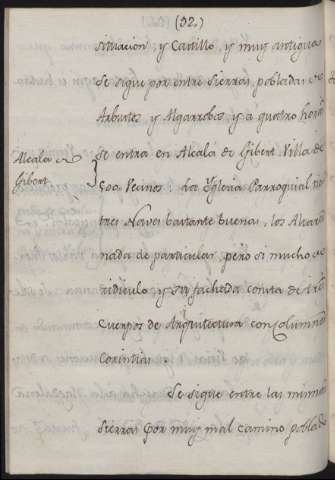 (92.)
situacion, y Castillo, y muy antigua
Se sigue por entre Sierras, pobladas de
Arbustos, y Algarrobos, y a quatro horas
Alcala de
Gibert
Se entra en Alcala de Gibert, Villa de
Vecinos: La Yglesia Parroquial
tres Naves bastante buena, los Altares
nada de particular, pero si mucho de
ridiculo y su fachada consta de tres
Cuerpos de Arquitectura con Columnas
Corintias.
Se sigue entre las mismas
Sierras por muy mal camino poblado